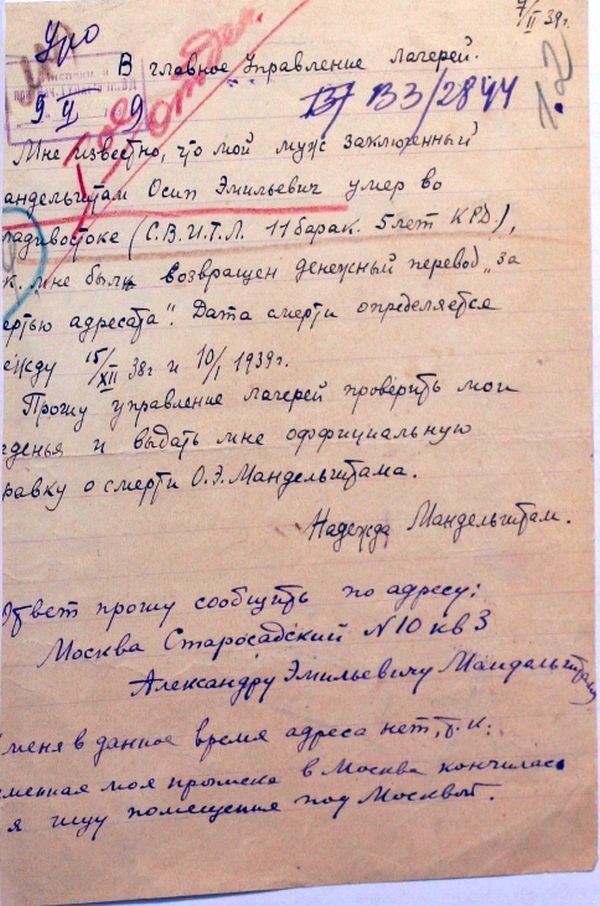 7/II 39г.
Уро
В главное Управление лагерей.
Отдел.
В3/2844
1.2
Мне известно, что мой муж заключенный
андельштам Осип Эмильевич умер во
ладивостоке (С.В.И.Т.Л. 11 барак. 5 лет КРД.),
к. мне был возвращен денежный перевод „за
ертью адресата". Дата смерти определяется
ежду 15/XII 38г и 10/I 1939г.
Прошу управление лагерей проверить мои
еденья и выдать мне оффициальную
равку о смерти О.Э.Мандельштама.
Надежда Мандельштам.
Ответ прошу сообщить по адресу:
Москва Старосадский N 10 кв 3
Александру Эмильевичу Мандельштаму
меня в данное время адреса нет, т.к.
менная моя прописка в Москве кончилась
я ищу помещения под Москвой.